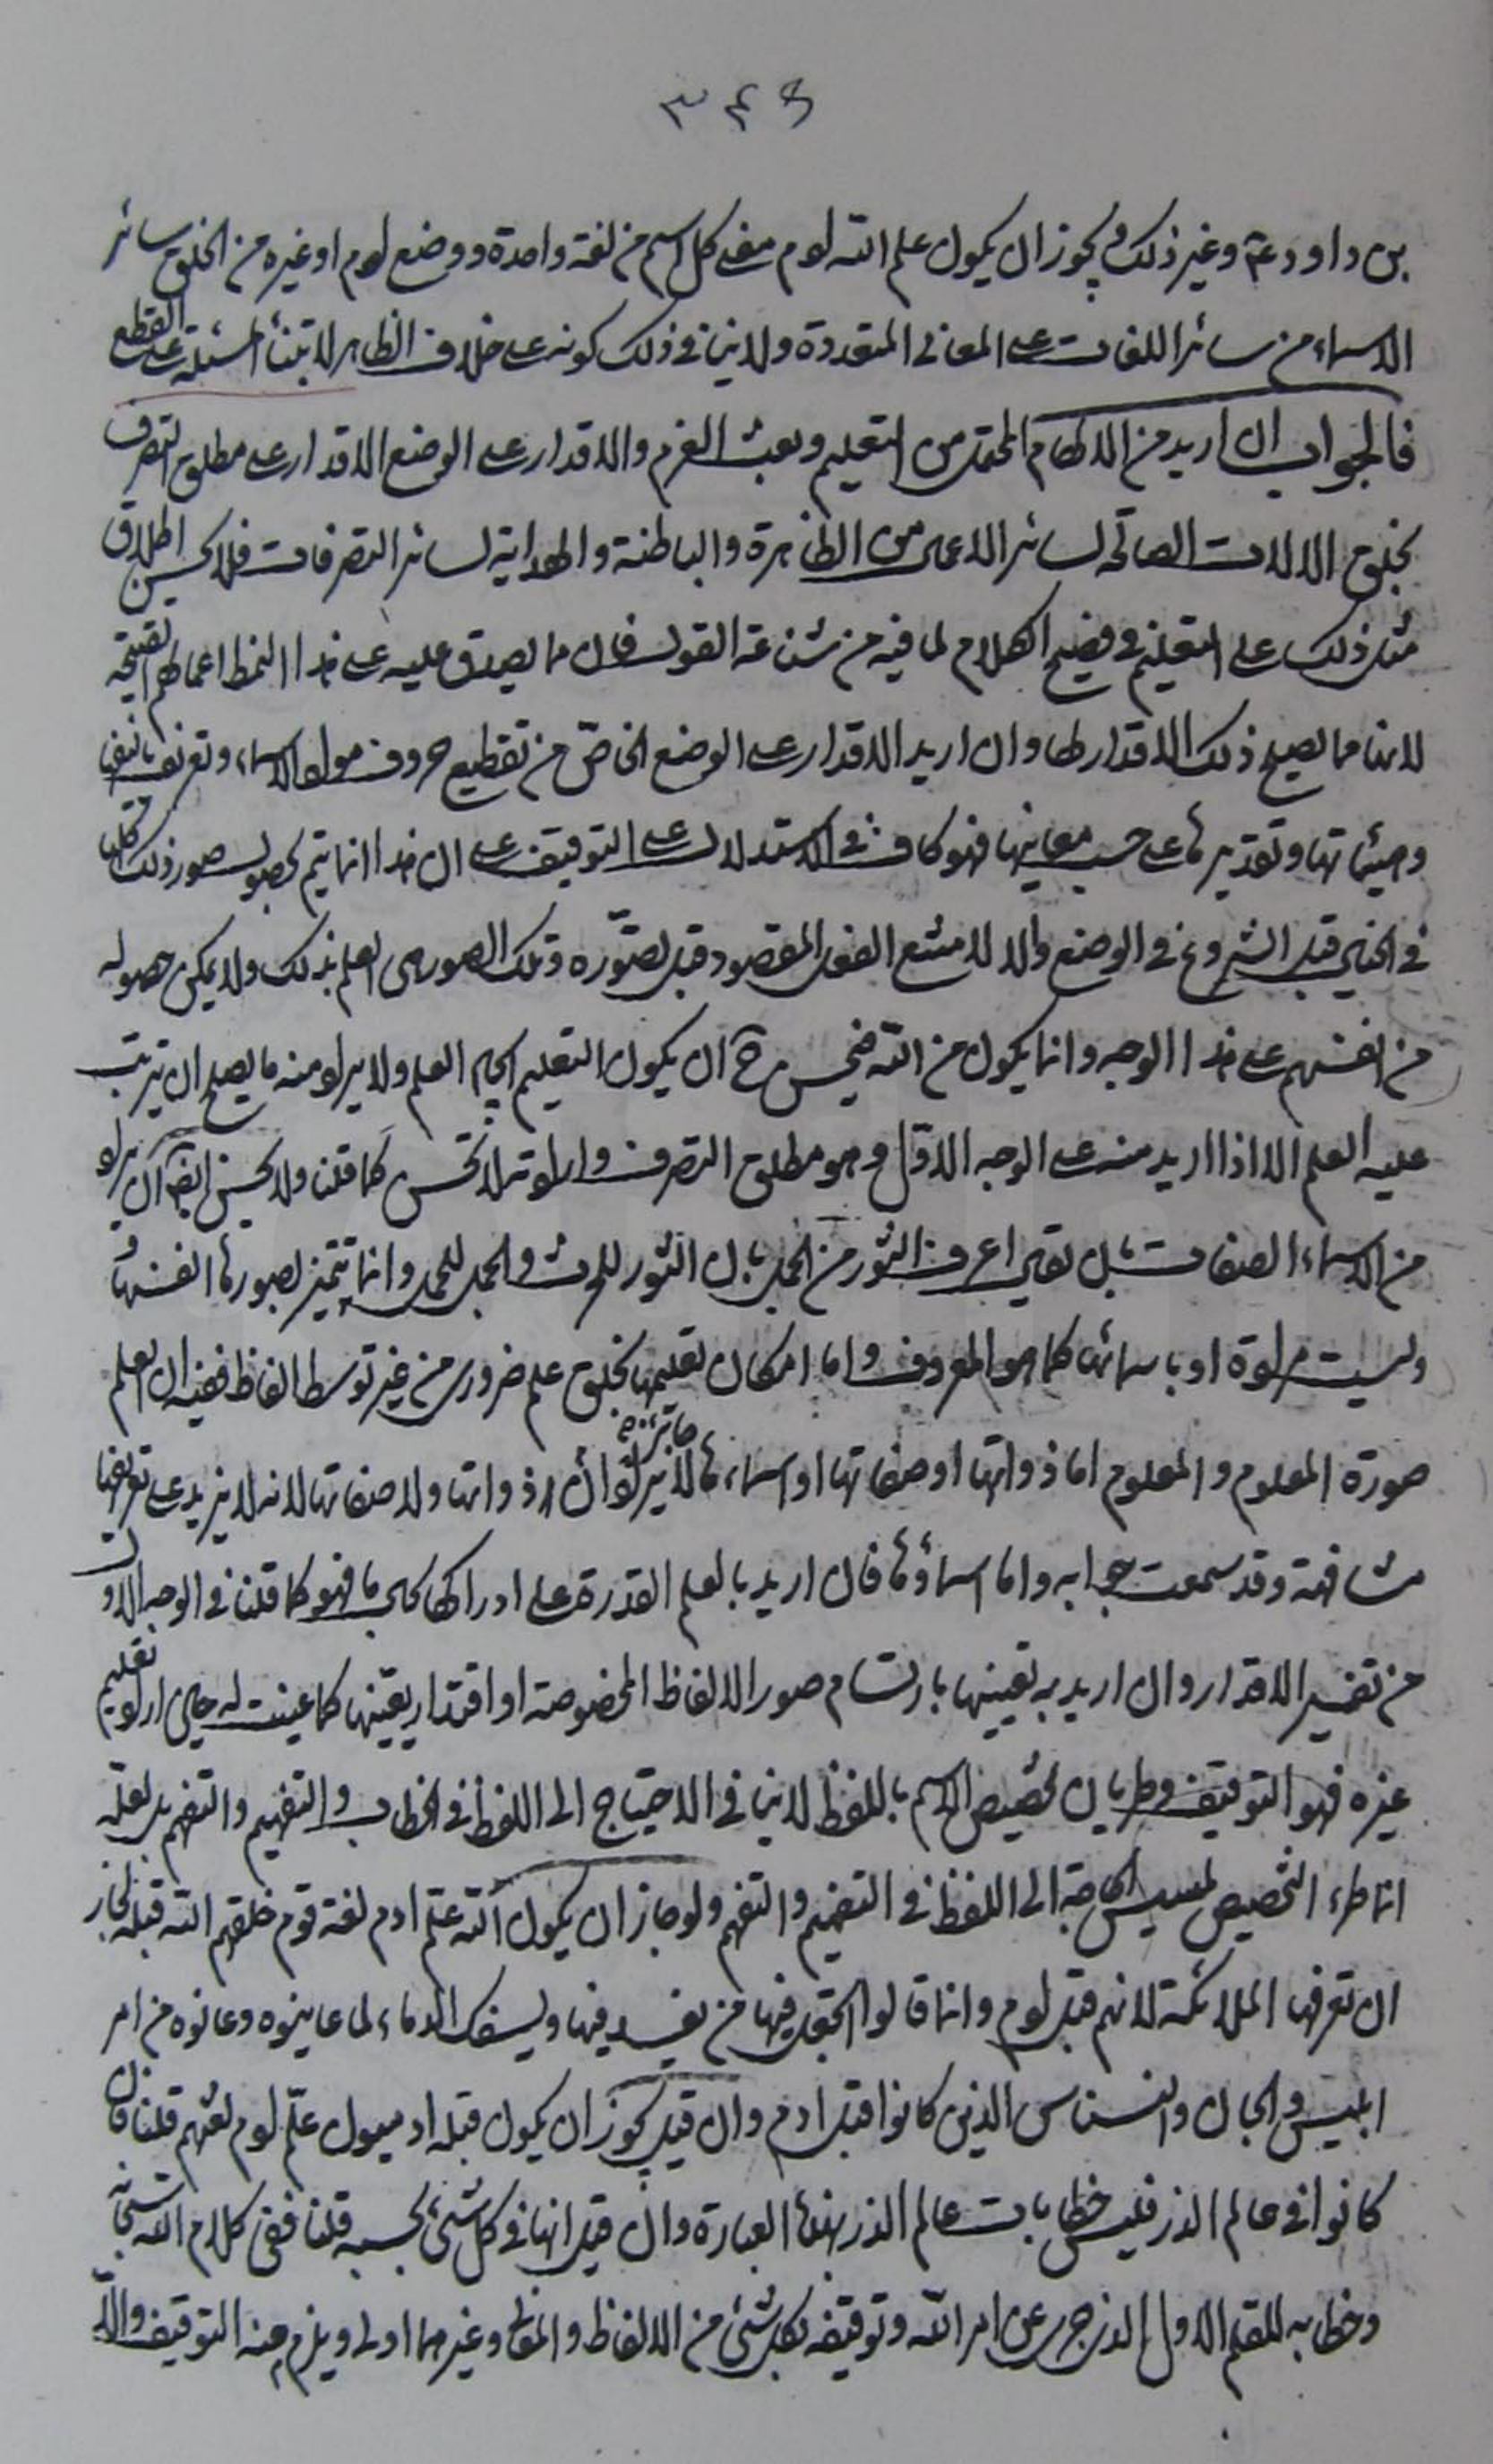 ٣٤٦
بن داود ع وغير ذلك ويجوز ان يكون علم الله ادم معنى كل اسم من لغة واحدة ووضع ادم او غيره من الخلق سائر
الاسماء من سائر اللغات على المعاني المتعددة ولا ينافي ذلك كونه على خلاف الظاهر لابتناء المسئلة على القطع
فالجواب ان اريد من الالهام المحتمل من التعليم وبعث العزم والاقدار على الوضع الاقدار على مطلق التصرف
بخلق الالات الصالحه لسائر الاعمال من الظاهرة والباطنة والهداية لسائر التصرفات فلا يحسن اطلاق
مثل ذلك على التعليم في فصيح الكلام لما فيه من شناعة القول فان مما يصدق عليه على هذا النمط اعمالهم القبيحة
لانها مما يصلح ذلك الاقدار لها وان اريد الاقدار على الوضع الخاص من تقطيع حروف مواد الاسماء وتعريف
وهيئاتها وتقديرها على حسب معانيها فهو كاف في الاستدلال على التوقيف على ان هذا انما يتم بحصول صور ذلك كلها
في الخيال قبل الشروع في الوضع والا لامتنع الفعل المقصود قبل تصوّره وتلك الصور هي العلم بذلك ولا يمكن حصوله
من انفسهم على هذا الوجه وانما يكون من الله فيحسن ح ان يكون التعليم ايجاد العلم ولا يراد منه ما يصلح ان يترتب
عليه العلم الا اذا اريد منه على الوجه الاول وهو مطلق التصرف وارادته لا تحسن كما قلنا ولا يحسن ايضا ان يراد
من الاسماء الصفات بل تعني اعرف الثور من الجمل بان الثور للحرث والجمل للحمل وانما تتميز بصورها انفسها و
ليست مرادة او باسمائها كما هو المعروف واما امكان تعليمها بخلق علم ضروري من غير توسط الفاظ ففيه ان العلم
صورة المعلوم والمعلوم اما ذواتها او صفاتها او اسماءها لا جائز ان يراد ذواتها ولا صفاتها لانه لا يزيد على تعريفها
مشافهة وقد سمعت جوابه واما اسماؤها فان اريد بالعلم القدرة على ادراكها فهو كما قلنا في الوجه الاول
من تفسير الاقدار وان اريد به تعيينها بارتسام صور الالفاظ المخصوصة او اقتدار يعينها كما عينت له حين اراد تعليم
غيره فهو التوقيف وطريان تخصيص الاسم باللفظ لا ينافي الاحتياج الى اللفظ في الخطاب والتفهيم والتفهم بل لعله
انما طرء التخصيص لمسيس الحاجة الى اللفظ في التفهيم والتفهم ولو جاز ان يكون الله علّم ادم لغة قوم خلقهم الله قبله لجاز
ان تعرفها الملائكة لانهم قبل ادم وانما قالوا اتجعل فيها من يفسد فيها ويسفك الدماء لما عاينوه وعانوه من امر
ابليس والجان والنسناس الذين كانوا قبل ادم وان قيل يجوز ان يكون قبله ادميون علّم ادم لغتهم قلنا فان
كانوا في عالم الذر فليس خطابات عالم الذر بهذه العبارة وان قيل انها في كل شئ بحسبه قلنا ففي كلام الله سبحانه
وخطابه للقلم الاول الذي جرى عن امر الله وتوقيفه بكل شئ من الالفاظ والمعاني وغيرهما اولى ويلزم منه التوقيف والله